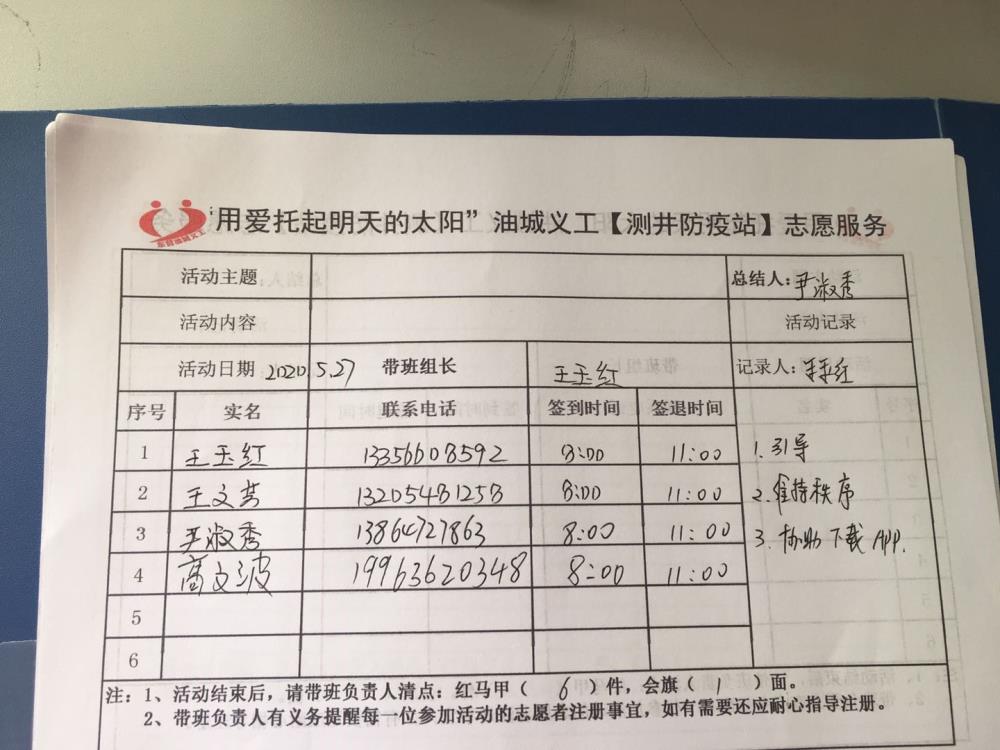 “用爱托起明天的太阳”油城义工【测井防疫站】志愿服务
东营油城义工
活动主题 总结人：尹淑秀
活动内容 活动记录
活动日期 2020.5.27 带班组长 王玉红 记录人：
序号 实名 联系电话 签到时间 签退时间
1 王玉红 13356608592 8:00 11:00 1. 引导
2 王文芳 13205481258 8:00 11:00 2. 维持秩序
3 尹淑秀 13864727863 8:00 11:00 3. 协助下载APP.
4 高文波 19963620348 8:00 11:00
5
6
注：1、活动结束后，请带班负责人清点：红马甲（ 6 ）件，会旗（ 1 ）面。
2、带班负责人有义务提醒每一位参加活动的志愿者注册事宜，如有需要还应耐心指导注册。